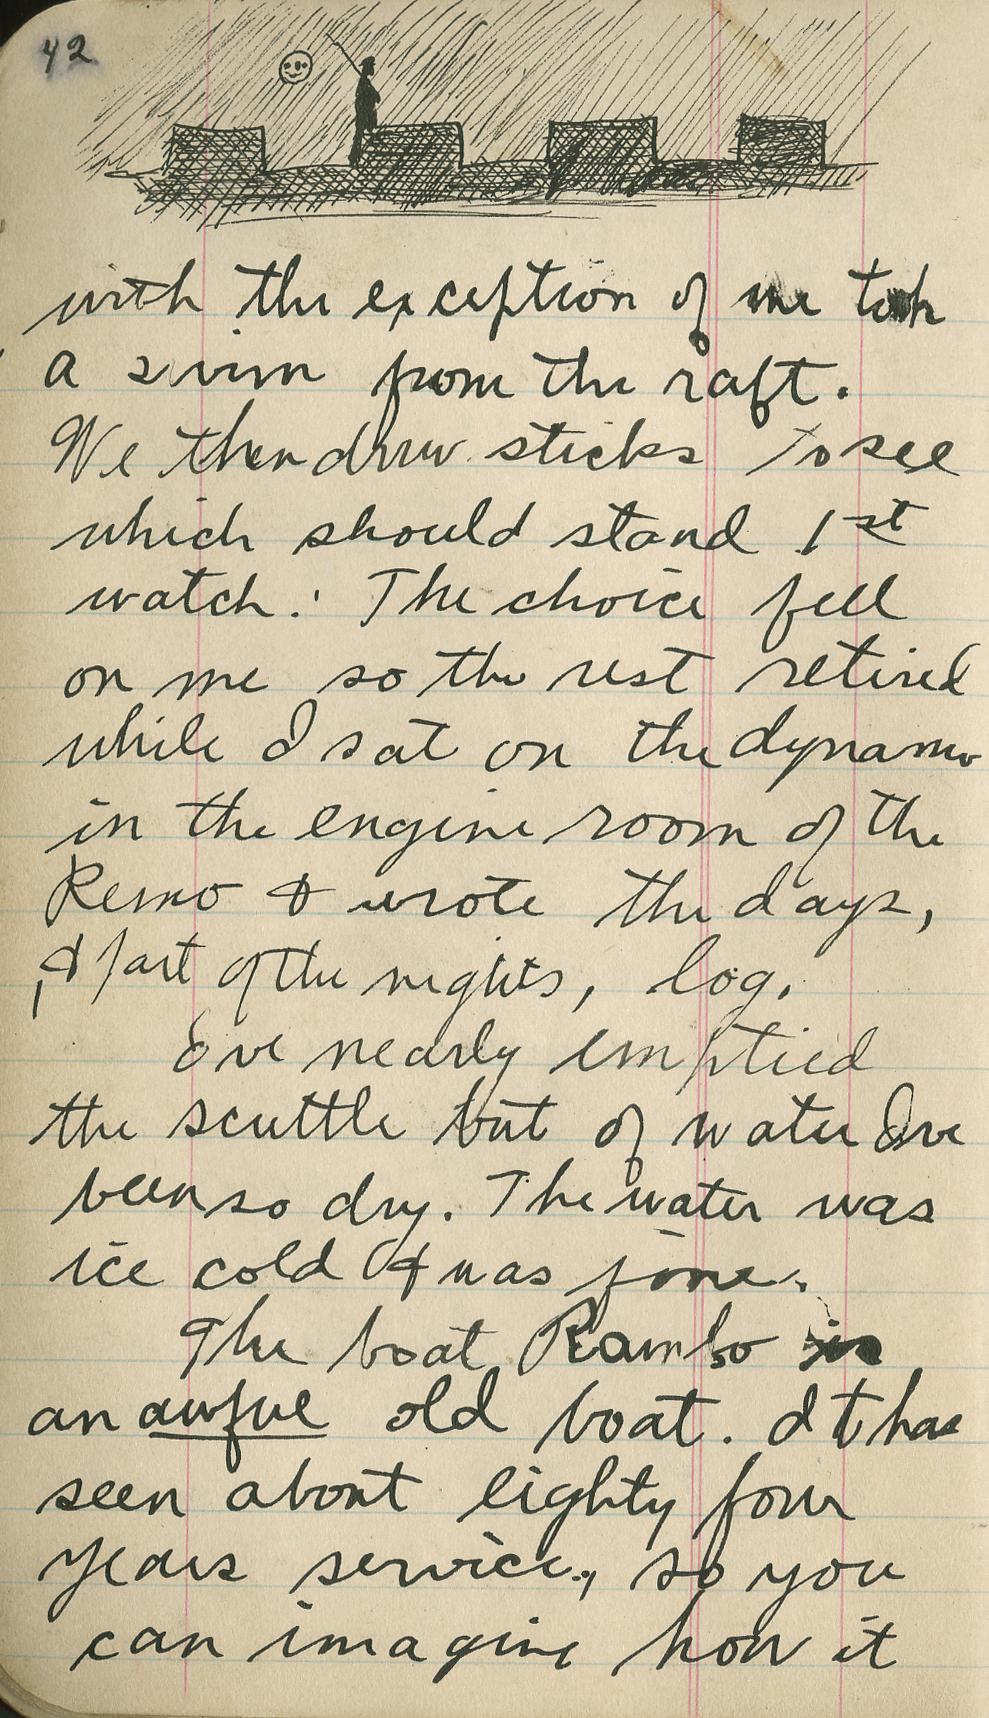 42
with the exception of me took
a swim from the raft.
We then drew sticks to see
which should stand 1st
watch. The choice fell
on me so the rest retired
while I sat on the dynamo
in the engine room of the
& wrote the days,
& part of the nights, log.
I've nearly emptied
the scuttle but of water I've
been so dry. The water was
ice cold & was
The boat Rambo is
an awful old boat. It has
seen about eighty four
years service, so you
can imagine how it